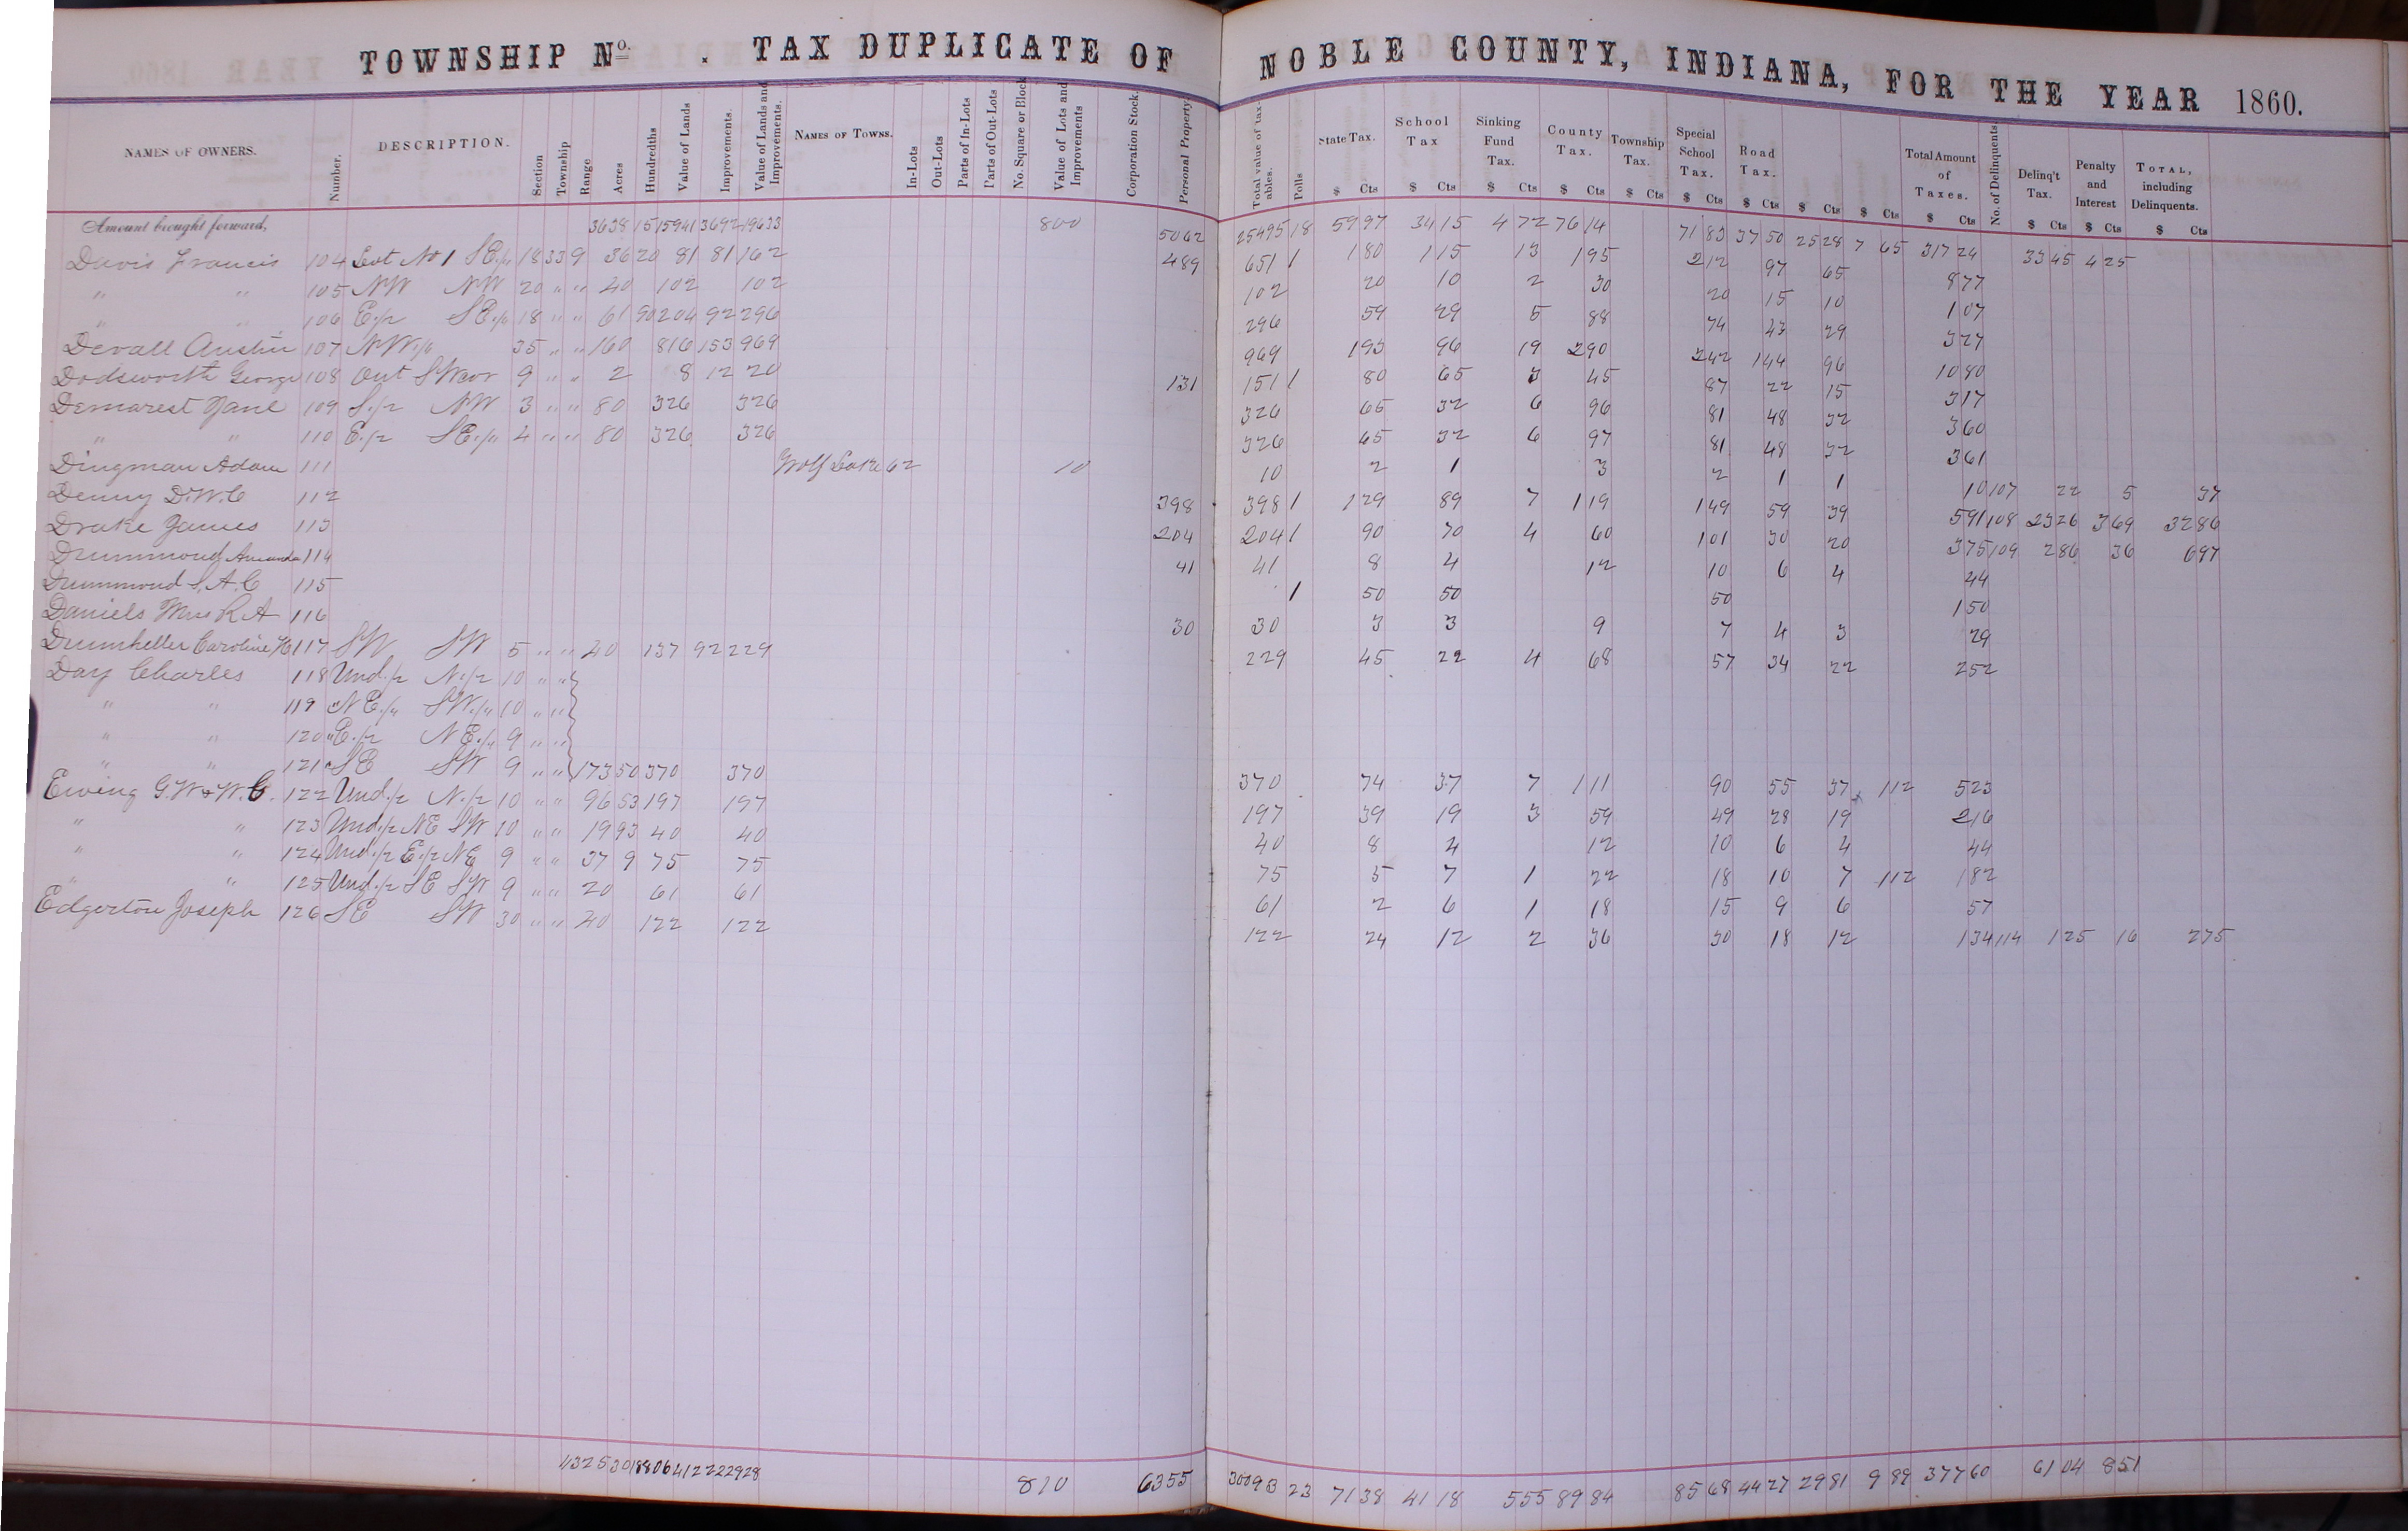 TOWNSHIP No. . TAX DUPLICATE OF NOBLE COUNTY, INDIANA, FOR THE YEAR 1860.
NAMES OF OWNERS. Number. DESCRIPTION. Section Township Range Acres Hundredths Value of Lands Improvements. Value of Lands and Improvements. NAMES OF TOWNS. In-Lots Out-Lots Parts of In-Lots Parts of Out-Lots No. Square or Block Value of Lots and Improvements Corporation Stock. Personal Property Total value of taxables. Polls State Tax. School Tax Sinking Fund Tax. County Tax. Township Tax. Special School Tax. Road Tax. Total Amount of Taxes. No. of Delinquents. Delinq't Tax. Penalty and Interest TOTAL, including Delinquents.
$ Cts $ Cts $ Cts $ Cts $ Cts $ Cts $ Cts $ Cts $ Cts $ Cts $ Cts $ Cts $ Cts
Amount brought forward, 3638 15 15941 3692 19633 800 5062 25495 18 59 97 34 15 4 72 76 14 71 83 37 50 25 28 7 65 317 24 33 45 4 25
Davis Francis 104 Lot No 1 SE 1/4 18 33 9 36 20 81 81 162 489 651 1 1 80 1 15 13 1 95 2 12 97 65 8 77
" " 105 NW NW 20 " " 40 102 102 102 20 10 2 30 20 15 10 1 07
" " 106 E 1/2 SE 1/4 18 " " 61 90 204 92 296 296 59 29 5 88 74 43 29 3 27
Devall Austin 107 NW 1/4 35 " " 160 816 153 969 969 1 93 96 19 2 90 2 42 1 44 96 10 80
Dodsworth George 108 Out SW cor 9 " " 2 8 12 20 131 151 1 80 65 3 45 87 22 15 3 17
Demarest Jane 109 S 1/2 NW 3 " " 80 326 326 326 65 32 6 96 81 48 32 3 60
" " 110 E 1/2 SE 1/4 4 " " 80 326 326 326 65 32 6 97 81 48 32 3 61
Dingman Adam 111 Wolf Lake 62 10 10 2 1 3 2 1 1 10 107 22 5 37
Denny D.W.C 112 398 398 1 1 29 89 7 1 19 1 49 59 39 5 91 108 23 26 3 69 32 86
Drake James 113 204 204 1 90 70 4 60 1 01 30 20 3 75 109 2 86 36 6 97
Drummond Amanda 114 41 41 8 4 12 10 6 4 44
Drummond S.A.C 115 1 50 50 50 1 50
Daniels Mrs R A 116 30 30 3 3 9 7 4 3 29
Drumheller Caroline H 117 SW SW 5 " " 40 137 92 229 229 45 22 4 68 57 34 22 2 52
Day Charles 118 Und 1/2 N 1/2 10 " "
" " 119 " NE 1/4 SW 1/4 10 " "
" " 120 " E 1/2 NE 1/4 9 " "
" " 121 " SE SW 9 " " 173 50 370 370 370 74 37 7 1 11 90 55 37 1 12 5 23
Ewing G.W & W.G. 122 Und 1/2 N 1/2 10 " " 96 53 197 197 197 39 19 3 59 49 28 19 2 16
" " 123 Und 1/2 NE SW 10 " " 19 93 40 40 40 8 4 12 10 6 4 44
" " 124 Und 1/2 E 1/2 NE 9 " " 37 9 75 75 75 5 7 1 22 18 10 7 1 12 1 82
" " 125 Und 1/2 SE SW 9 " " 20 61 61 61 2 6 1 18 15 9 6 57
Edgerton Joseph 126 SE SW 30 " " 40 122 122 122 24 12 2 36 30 18 12 1 34 114 1 25 16 2 75
4325 30 18806 4122 22928 810 6355 30093 23 71 38 41 18 5 55 89 84 85 68 44 27 29 81 9 89 377 60 61 04 8 51